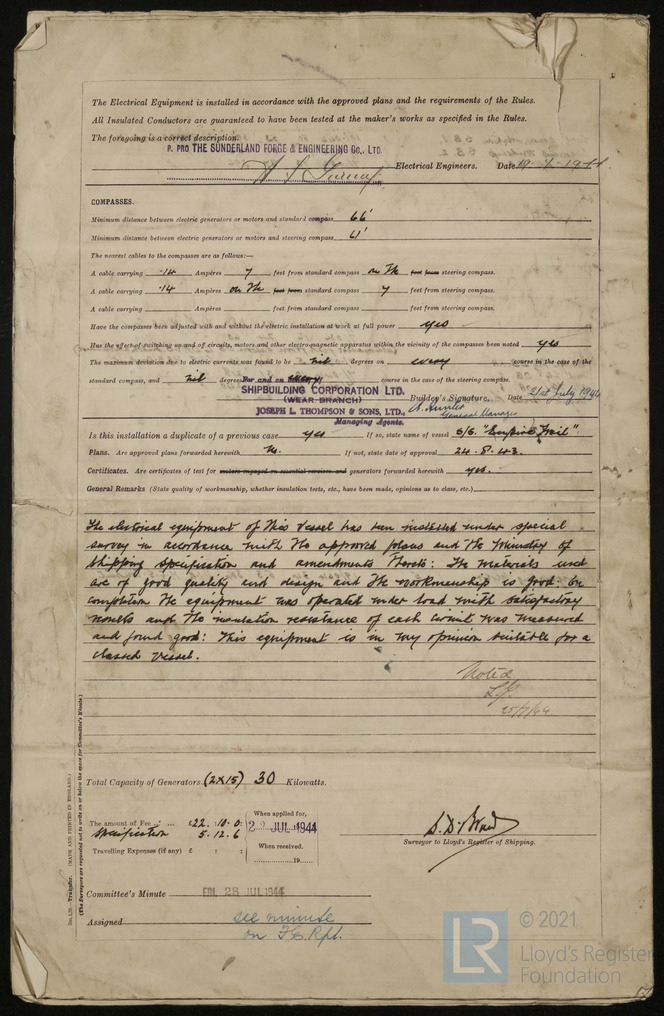 The Electrical Equipment is installed in accordance with the approved plans and the requirements of the Rules.
All Insulated Conductors are guaranteed to have been tested at the maker's works as specified in the Rules.
The foregoing is a correct description.
P. PRO THE SUNDERLAND FORGE & ENGINEERING Co., LTD.
Electrical Engineers. Date 19.7.1944
COMPASSES.
Minimum distance between electric generators or motors and standard compass 66'
Minimum distance between electric generators or motors and steering compass 61'
The nearest cables to the compasses are as follows:—
A cable carrying .14 Ampères 7 feet from standard compass on the feet from steering compass.
A cable carrying .14 Ampères on the feet from standard compass 7 feet from steering compass.
A cable carrying Ampères feet from standard compass feet from steering compass.
Have the compasses been adjusted with and without the electric installation at work at full power yes
Has the effect of switching on and off circuits, motors and other electro-magnetic apparatus within the vicinity of the compasses been noted yes
The maximum deviation due to electric currents was found to be nil degrees on every course in the case of the
standard compass, and nil degrees on every course in the case of the steering compass.
For and on
SHIPBUILDING CORPORATION LTD.
(WEAR BRANCH)
JOSEPH L. THOMPSON & SONS, LTD.,
Managing Agents.
Builder's Signature. Date 21st July 1944
General Manager
Is this installation a duplicate of a previous case yes If so, state name of vessel S/S. "Empire Trail"
Plans. Are approved plans forwarded herewith No. If not, state date of approval 24.8.43.
Certificates. Are certificates of test for motors engaged on essential services and generators forwarded herewith yes.
General Remarks (State quality of workmanship, whether insulation tests, etc., have been made, opinions as to class, etc.)
The electrical equipment of this vessel has been installed under special
survey in accordance with the approved plans and the Ministry of
Shipping Specification and amendments thereto: The materials used
are of good quality and design and the workmanship is good. On
completion the equipment was operated under load with satisfactory
results and the insulation resistance of each circuit was measured
and found good: This equipment is in my opinion suitable for a
classed vessel.
Noted
25/7/44
Total Capacity of Generators (2x15) 30 Kilowatts.
The amount of Fee £22.10.0
Specification 5.12.6
Travelling Expenses (if any) £ : :
When applied for,
JUL 1944
When received.
19
Surveyor to Lloyd's Register of Shipping.
Committee's Minute FRI. 28 JUL 1944
Assigned see minute
on F.E. Rpt.
Transfer. (MADE AND PRINTED IN ENGLAND.)
(The Surveyors are requested not to write on or below the space for Committee's Minute.)
LR
© 2021
Lloyd's Register
Foundation